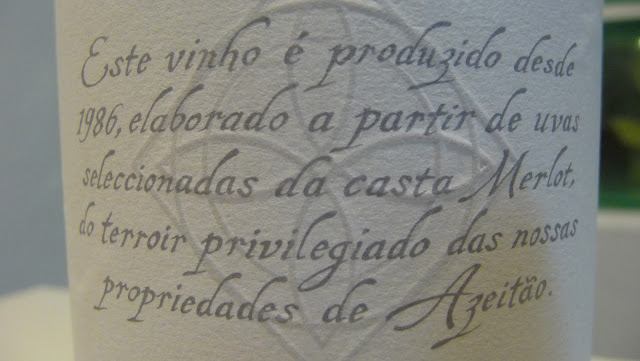 Este vinho é produzido desde
1986, elaborado a partir de uvas
seleccionadas da casta Merlot,
do terroir privilegiado das nossas
propriedades de Azeitão.